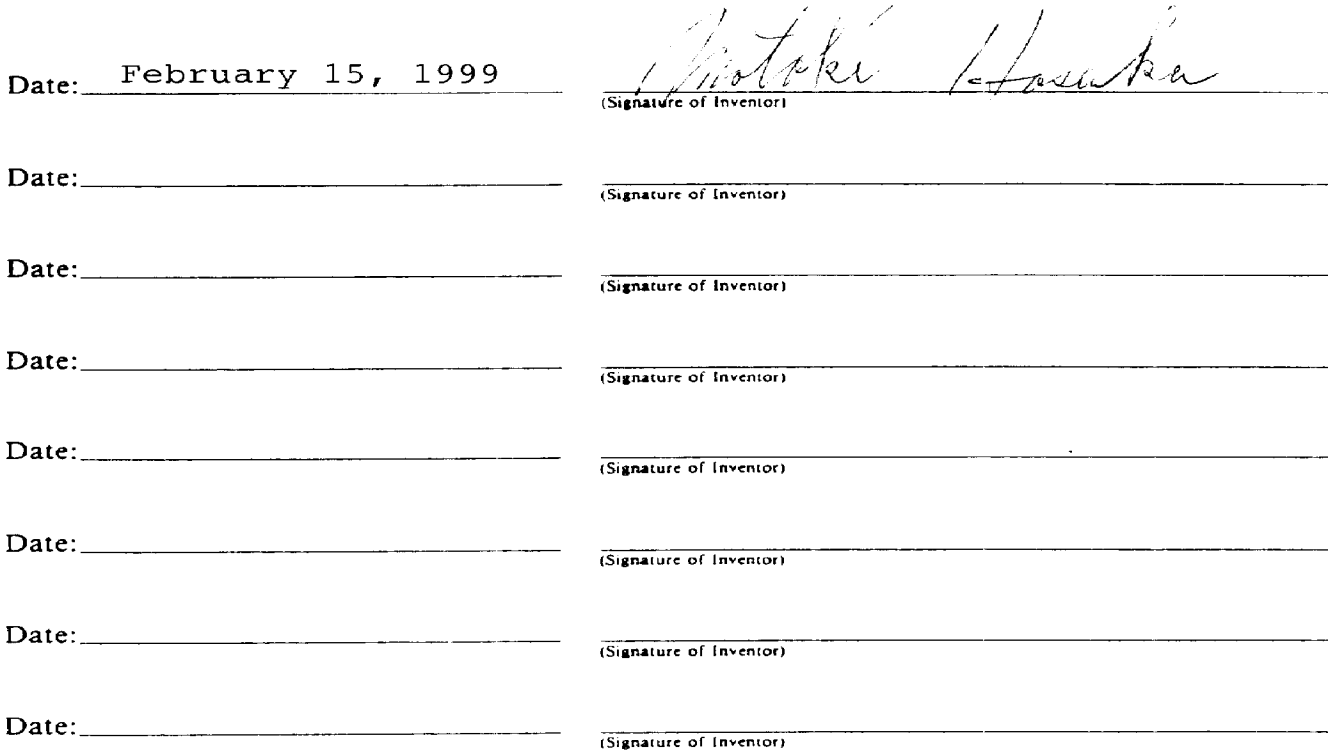 Date: February 15, 1999 Motoki Hosaka
(Signature of Inventor)
Date:
(Signature of Inventor)
Date:
(Signature of Inventor)
Date:
(Signature of Inventor)
Date:
(Signature of Inventor)
Date:
(Signature of Inventor)
Date:
(Signature of Inventor)
Date:
(Signature of Inventor)